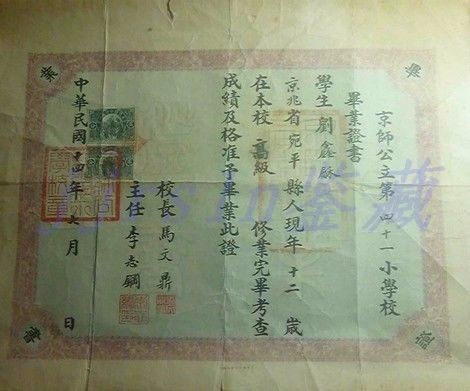 京師公立第四十一小學校
畢業證書
學生劉鑫
京兆省宛平縣人現年十二歲
在本校高級修業完畢考查
成績及格准予畢業此證
校長馬文鼎
主任李志鋼
中華民國十四年六月 日